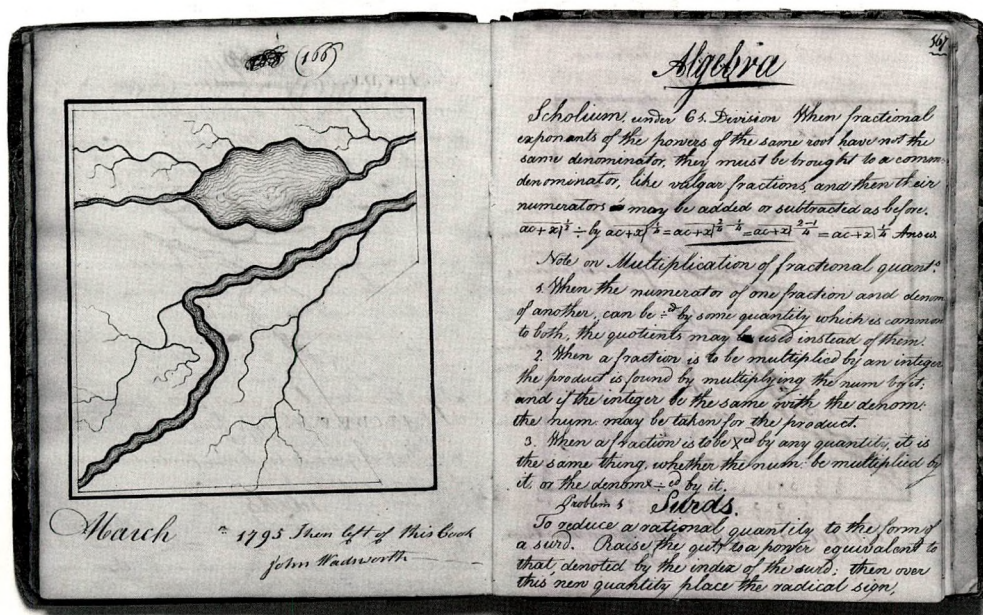 (166)
March th 1795 Then left of this Book
John Wadsworth
167
Algebra
Scholium, under 6 s. Division When fractional
exponants of the powers of the same root have not the
same denominator, they must be brought to a comm
denominator, like vulgar fractions, and then their
numerators may be added or subtracted as before.
ac+x|½ ÷ by ac+x|¼ = ac+x|2/4 - 1/4 = ac+x|2-1/4 = ac+x|¼ Answ.
Note on Multiplication of fractional quants.
1. When the numerator of one fraction and denom
of another, can be ÷ed by some quantity which is common
to both, the quotients may be used instead of them.
2. When a fraction is to be multiplied by an integer
the product is found by multiplying the num by it;
and if the integer be the same with the denom:
the num: may be taken for the product.
3. When a fraction is to be xed by any quantity, it is
the same thing, whether the num: be multiplied by
it or the denom ÷ed by it.
Problem 1 Surds.
To reduce a rational quantity to the form of
a surd. Raise the qty to a power equivalent to
that denoted by the index of the surd; then over
this new quantity place the radical sign,